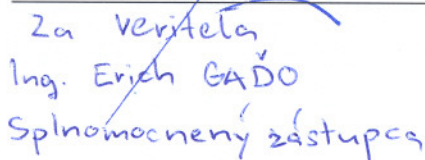 Za veriteľa
Ing. Erich GAĎO
Splnomocnený zástupca